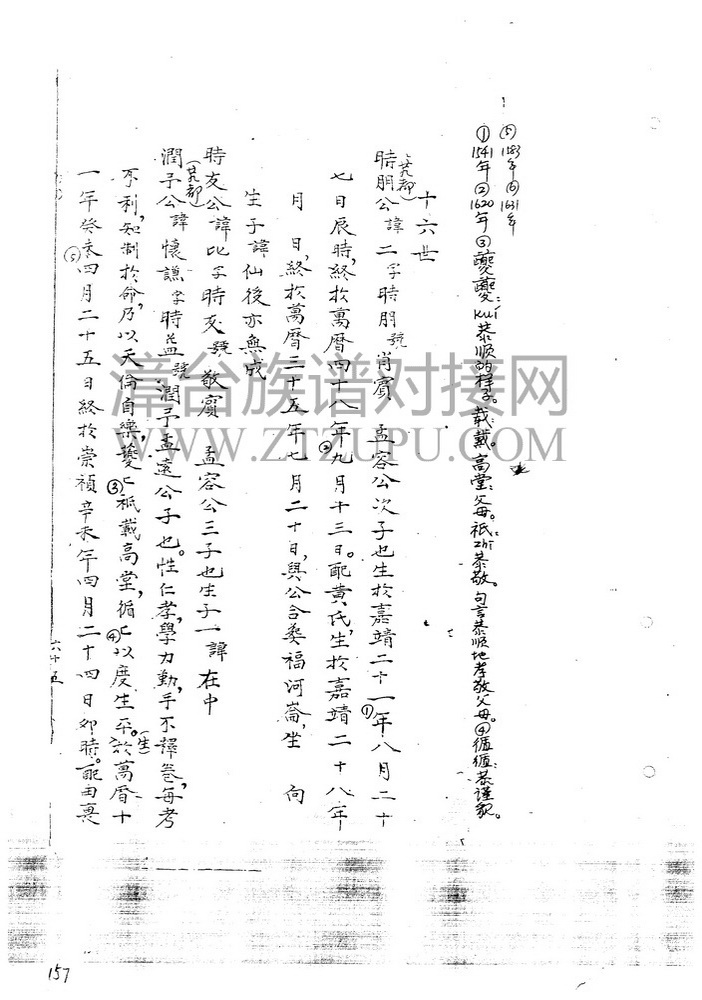 ⑤1583年⑥1631年
①1541年②1620年③夔夔:kuí恭順的样子。载:戴。高堂:父母。祗:zhī恭敬。句言恭順地孝敬父母。④循循:恭谨貌。
十六世
時朋公諱二字時朋號肖賓 孟容公次子也生於嘉靖二十一年①八月二十
(廿九都)
七日辰時,終於萬曆四十八年②九月十三日。配黄氏,生於嘉靖二十八年
月 日,終於萬曆二十五年七月二十日,與公合葬福河崙,坐 向
生子諱仙後亦無成
時友公諱比字時友號敬賓 孟容公三子也生子一諱在中
(廿九都)
潤予公諱懷謙字時益號潤予孟遠公子也。性仁孝,學力勤,手不釋卷每考
不利,知制於命乃,以天倫自樂,夔々③祗戴高堂,循々④以度生平。(生)於萬曆十
一年癸未⑤四月二十五日終於崇禎辛未年四月二十四日卯時。配曲裏
六十五
157
漳台族谱对接网
WWW.ZTZUPU.COM